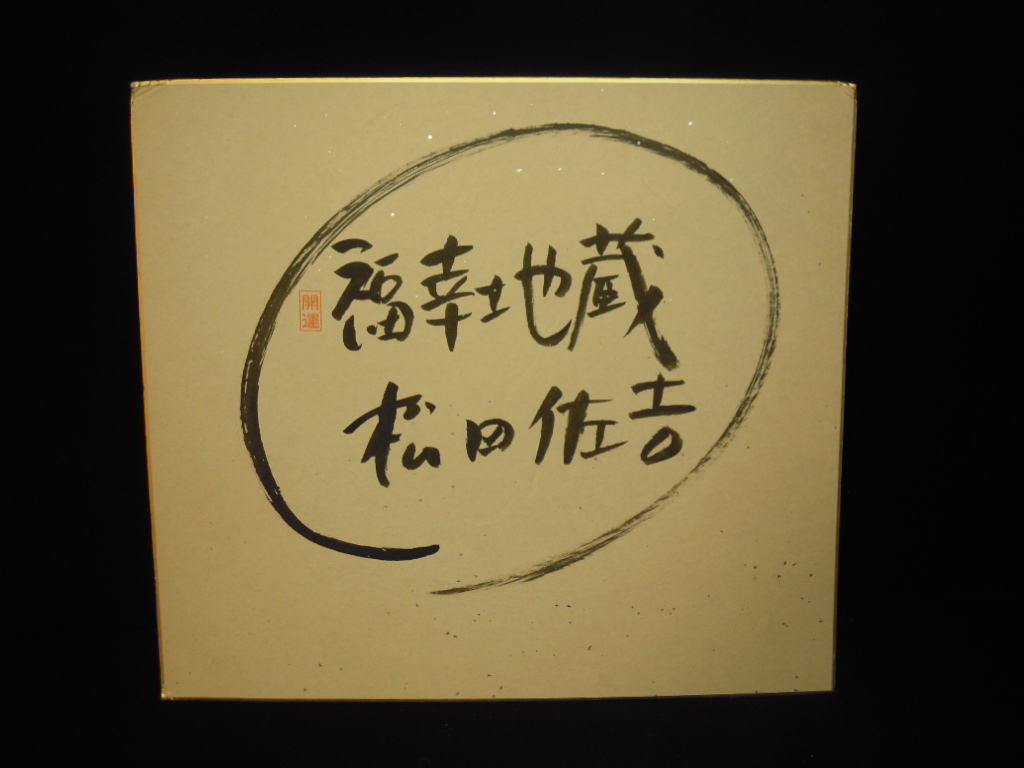 福幸地蔵
開運
松田佐吉